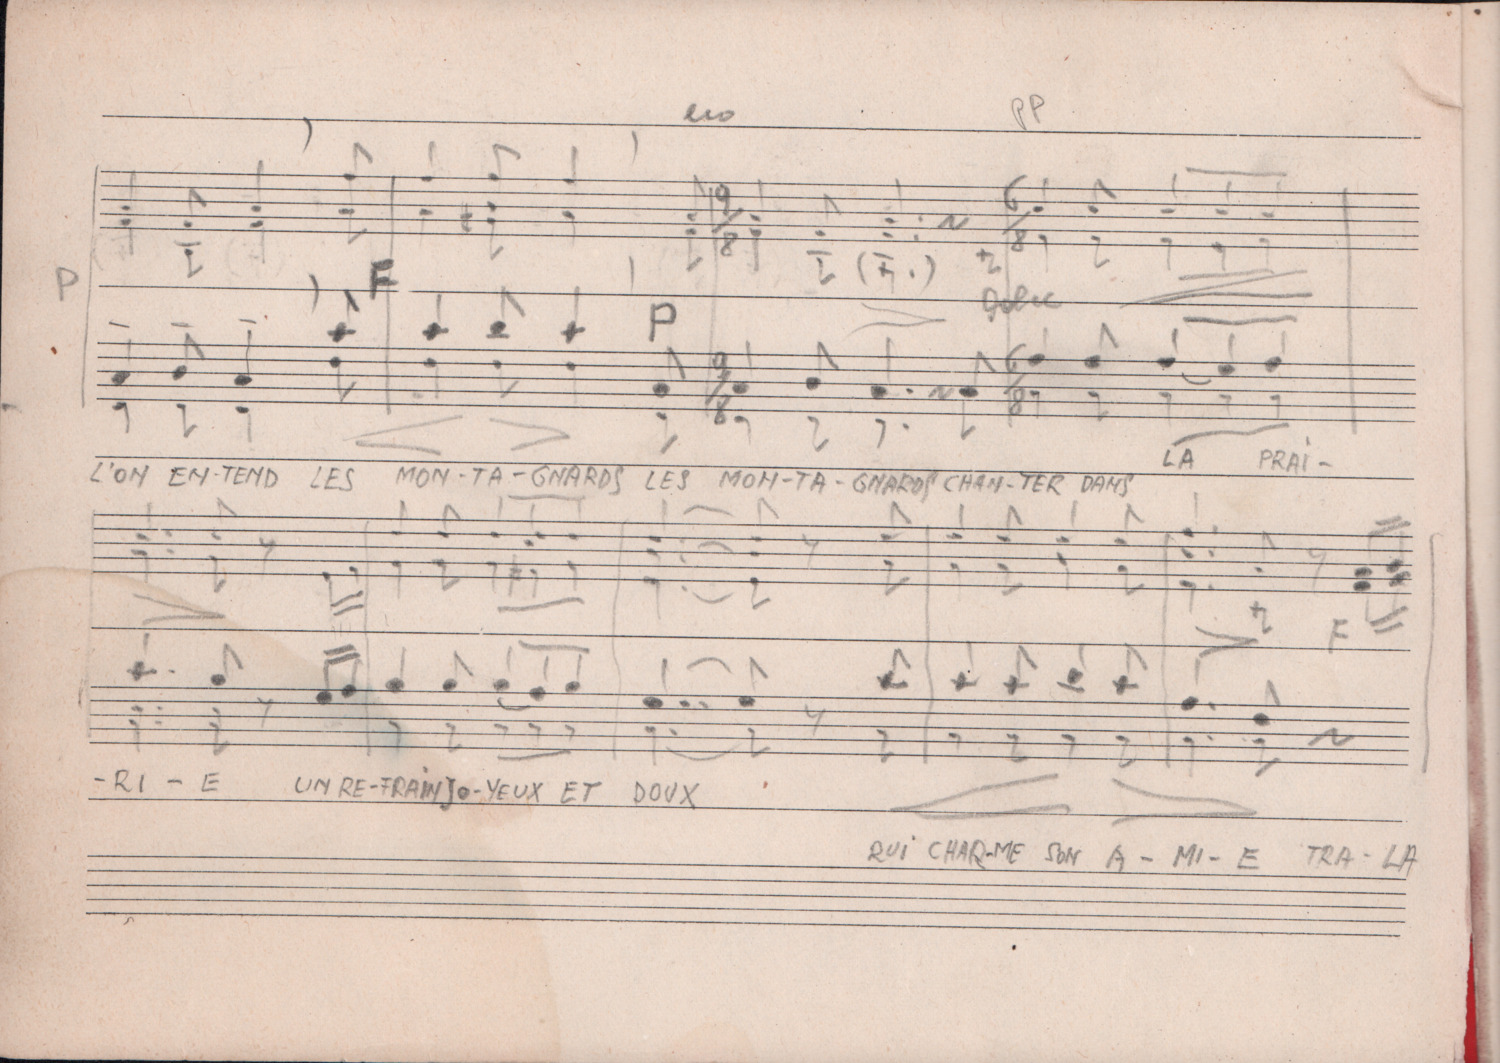 PP
9
8
6
8
P
F
P
9
8
6
8
L'ON EN-TEND LES MON-TA-GNARDS LES MON-TA-GNARDS CHAN-TER DANS LA PRAI-
F
-RI-E UN RE-FRAIN JO-YEUX ET DOUX
QUI CHAR-ME SON A-MI-E TRA-LA